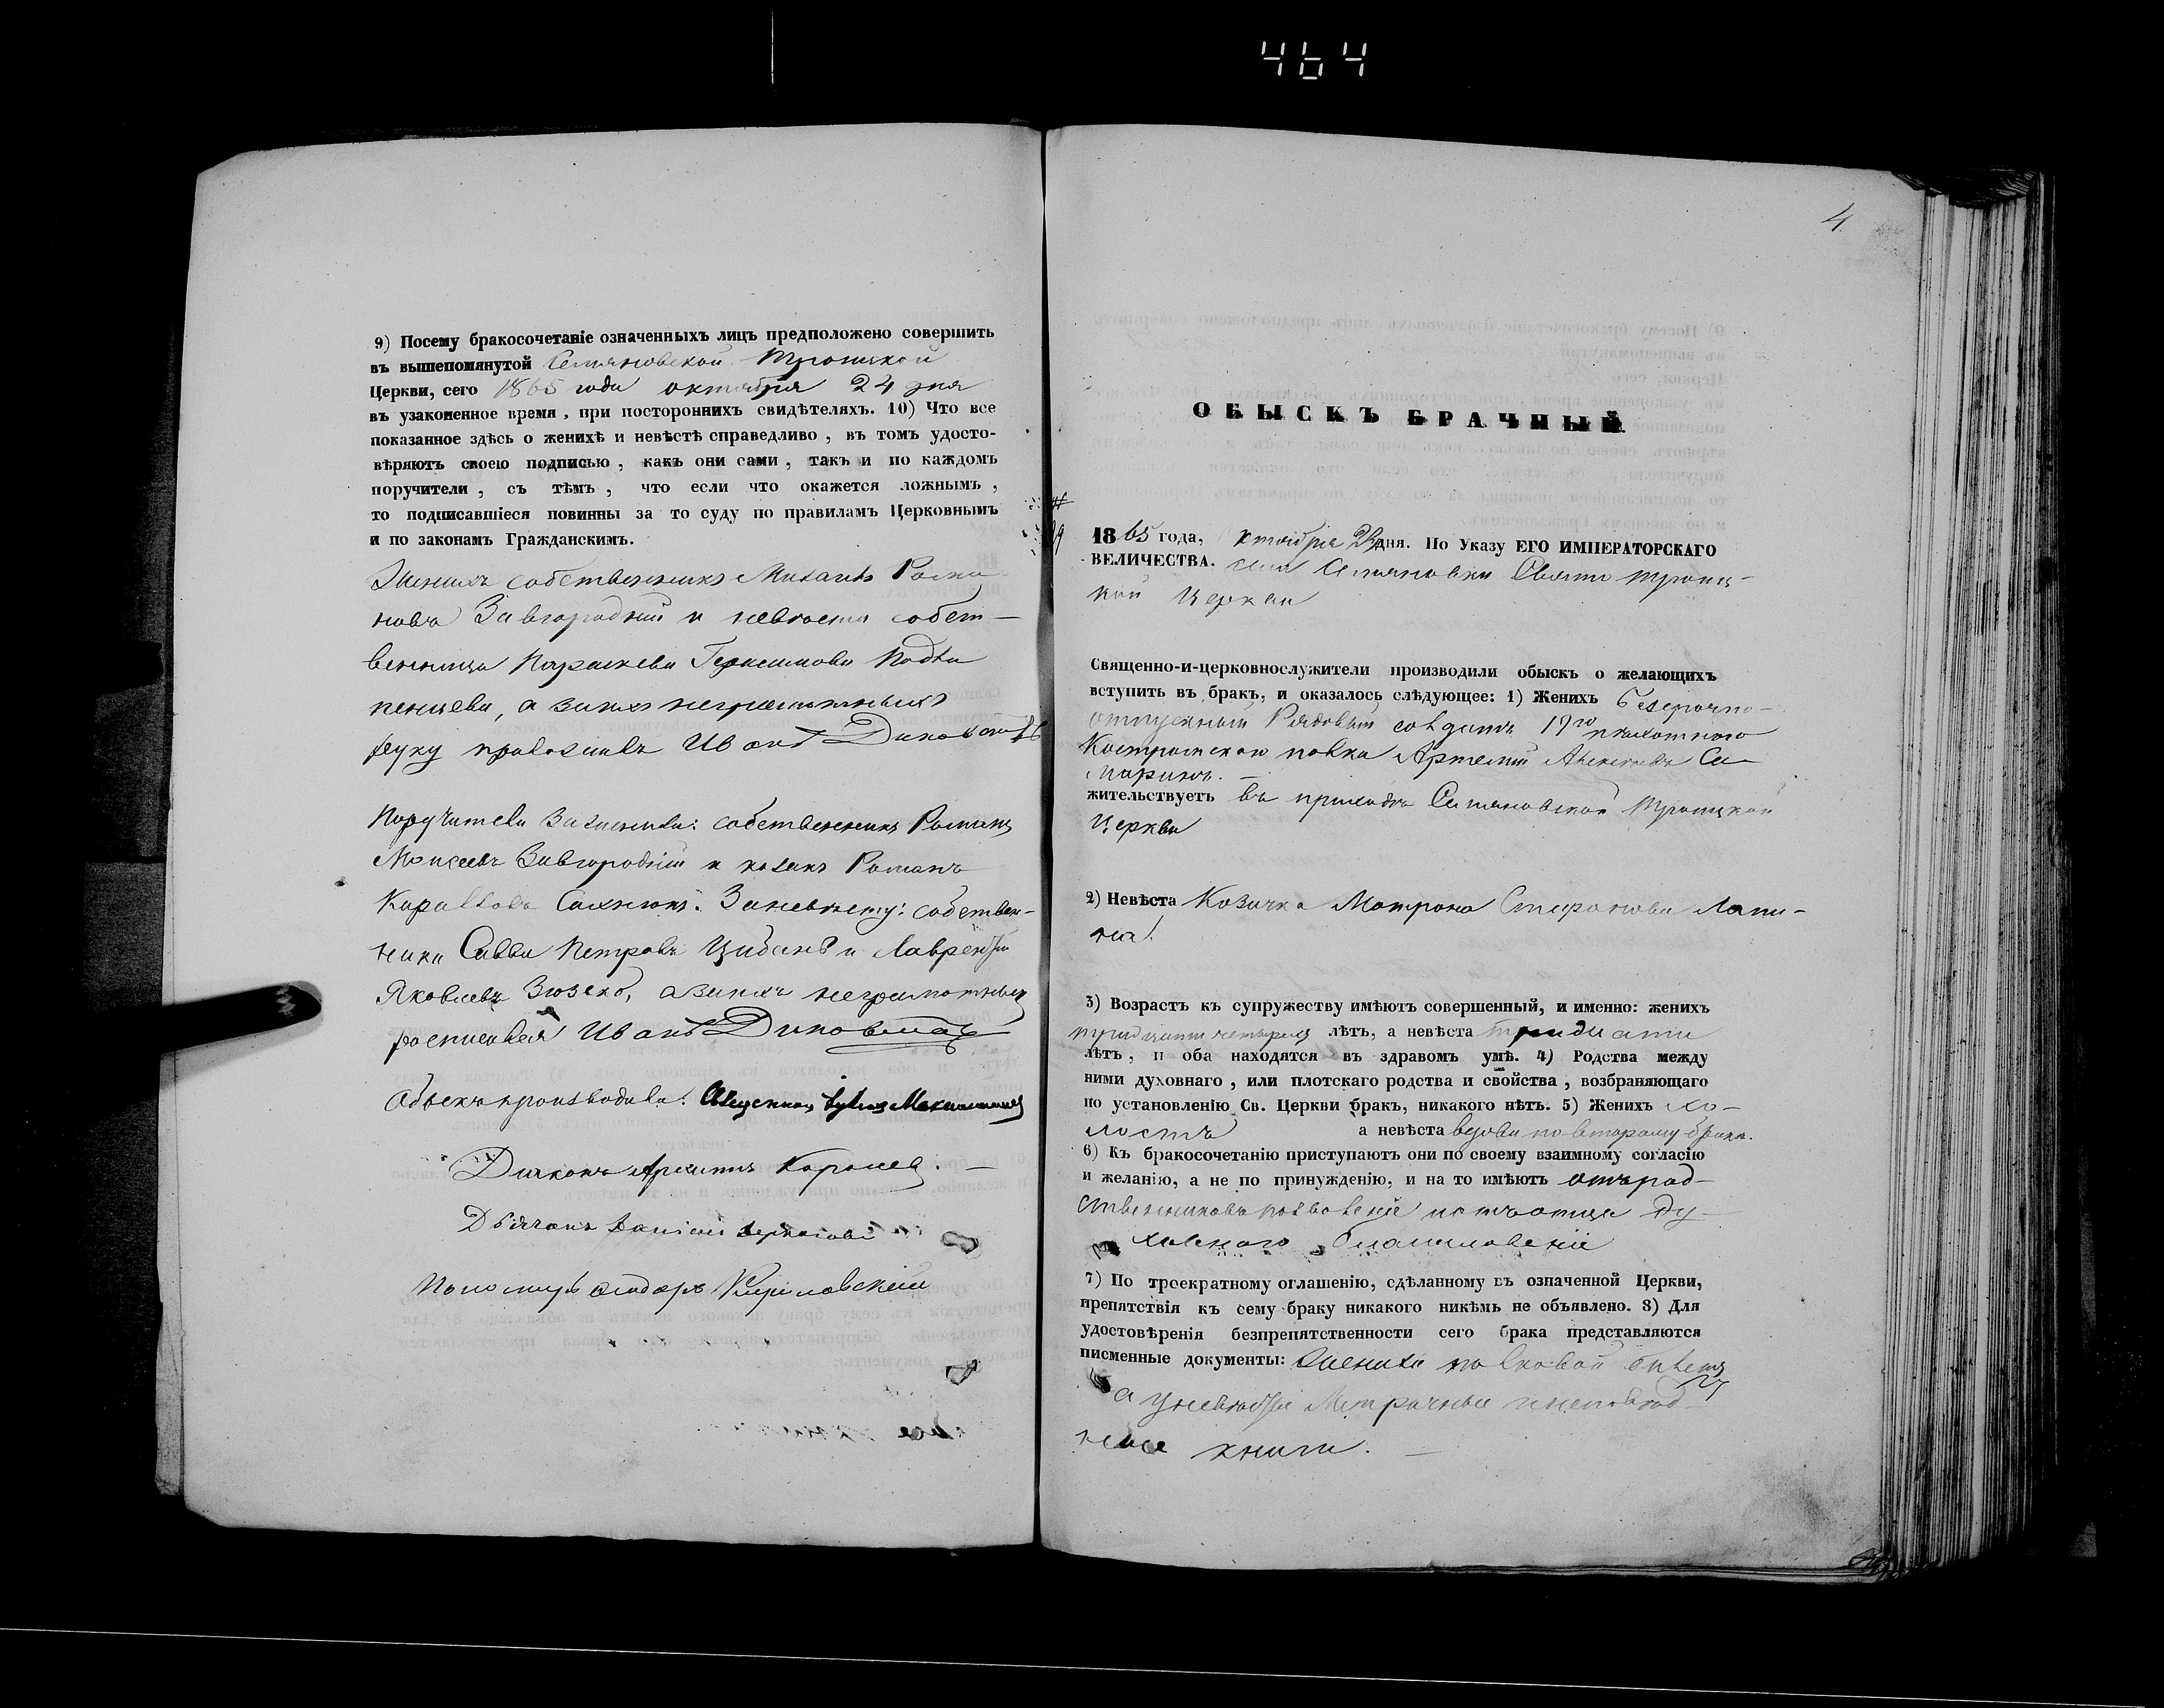 464
9) Посему бракосочетаніе означенныхъ лицъ предположено совершить
въ вышепомянутой Семяновской Троицкой
Церкви, сего 1865 года октября 24 дня
въ узаконенное время, при постороннихъ свидѣтеляхъ. 10) Что все
показанное здѣсь о женихѣ и невѣстѣ справедливо, въ томъ удосто-
вѣряютъ своею подписью, какъ они сами, такъ и по каждомъ
поручители, съ тѣмъ, что если что окажется ложнымъ,
то подписавшіеся повинны за то суду по правиламъ Церковнымъ
и по законамъ Гражданскимъ.
Женихъ собственникъ Михаилъ Рома-
новъ Завгородній и невѣста собст-
венница Параскева Герасимова
а за нихъ неграмотныхъ
руку приложилъ Иванъ
Поручители за женихи: собственникъ Романъ
Моисеевъ Завгородній и козакъ Романъ
Кириловъ За невѣсту: собствен-
ники Савва Петровъ Цибань и Лаврентій
Яковлевъ а за нихъ неграмотныхъ
росписался Иванъ
Обыскъ производили: Священникъ
Діаконъ
Дьячокъ
Пономарь Федоръ
4
ОБЫСКЪ БРАЧНЫЙ
1865 года, октября дня. По Указу ЕГО ИМПЕРАТОРСКАГО
ВЕЛИЧЕСТВА. села Семяновки Свято Троиц-
кой Церкви
Священно-и-церковнослужители производили обыскъ о желающихъ
вступить въ бракъ, и оказалось слѣдующее: 1) Женихъ безсрочно-
отпускный Рядовый солдатъ 19го пѣхотного
Костромского полка Артемій Алексѣевъ Са-
маринъ. —
жительствуетъ въ приходѣ Семяновской Троицкой
Церкви
2) Невѣста Козачка Матрона Стефанова Лапи-
на
3) Возрастъ къ супружеству имѣютъ совершенный, и именно: женихъ
тридцати четырехъ лѣтъ, а невѣста тридцати
лѣтъ, и оба находятся въ здравомъ умѣ. 4) Родства между
ними духовнаго, или плотскаго родства и свойства, возбраняющаго
по установленію Св. Церкви бракъ, никакого нѣтъ. 5) Женихъ хо-
лостъ а невѣста вдова по второму браку.
6) Къ бракосочетанію приступаютъ они по своему взаимному согласію
и желанію, а не по принужденію, и на то имѣютъ отъ род-
ственниковъ позволеніе и отъ отца ду-
ховного благословеніе
7) По троекратному оглашенію, сдѣланному въ означенной Церкви,
препятствія къ сему браку никакого никѣмъ не объявлено. 8) Для
удостовѣренія безпрепятственности сего брака представляются
писменные документы: Жениха полковой билетъ
а у невѣсты Метричные и исповѣд-
ные книги. —